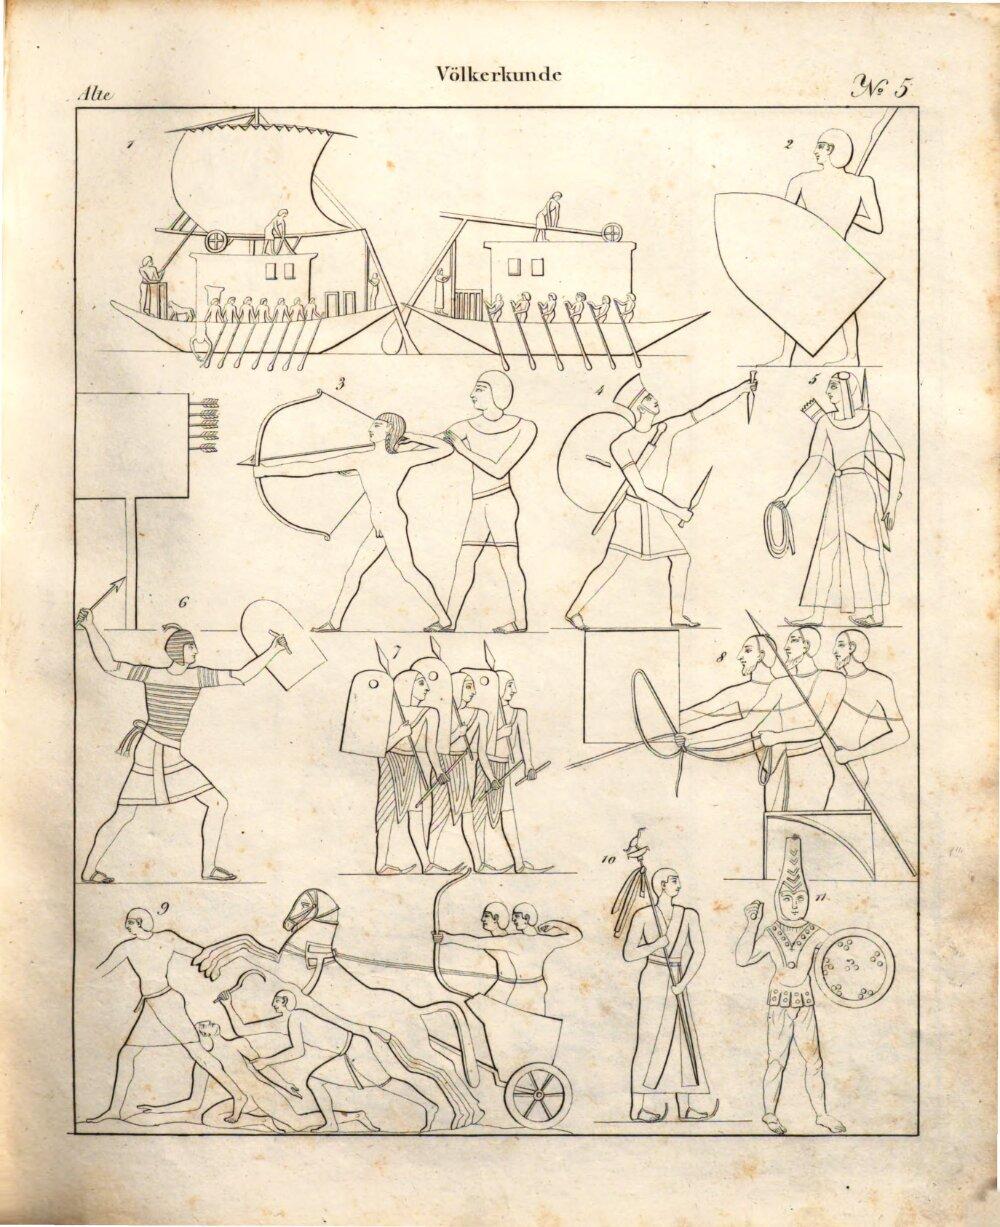 Völkerkunde
Alte
No. 5
1
2
3
4
5
6
7
8
9
10
11